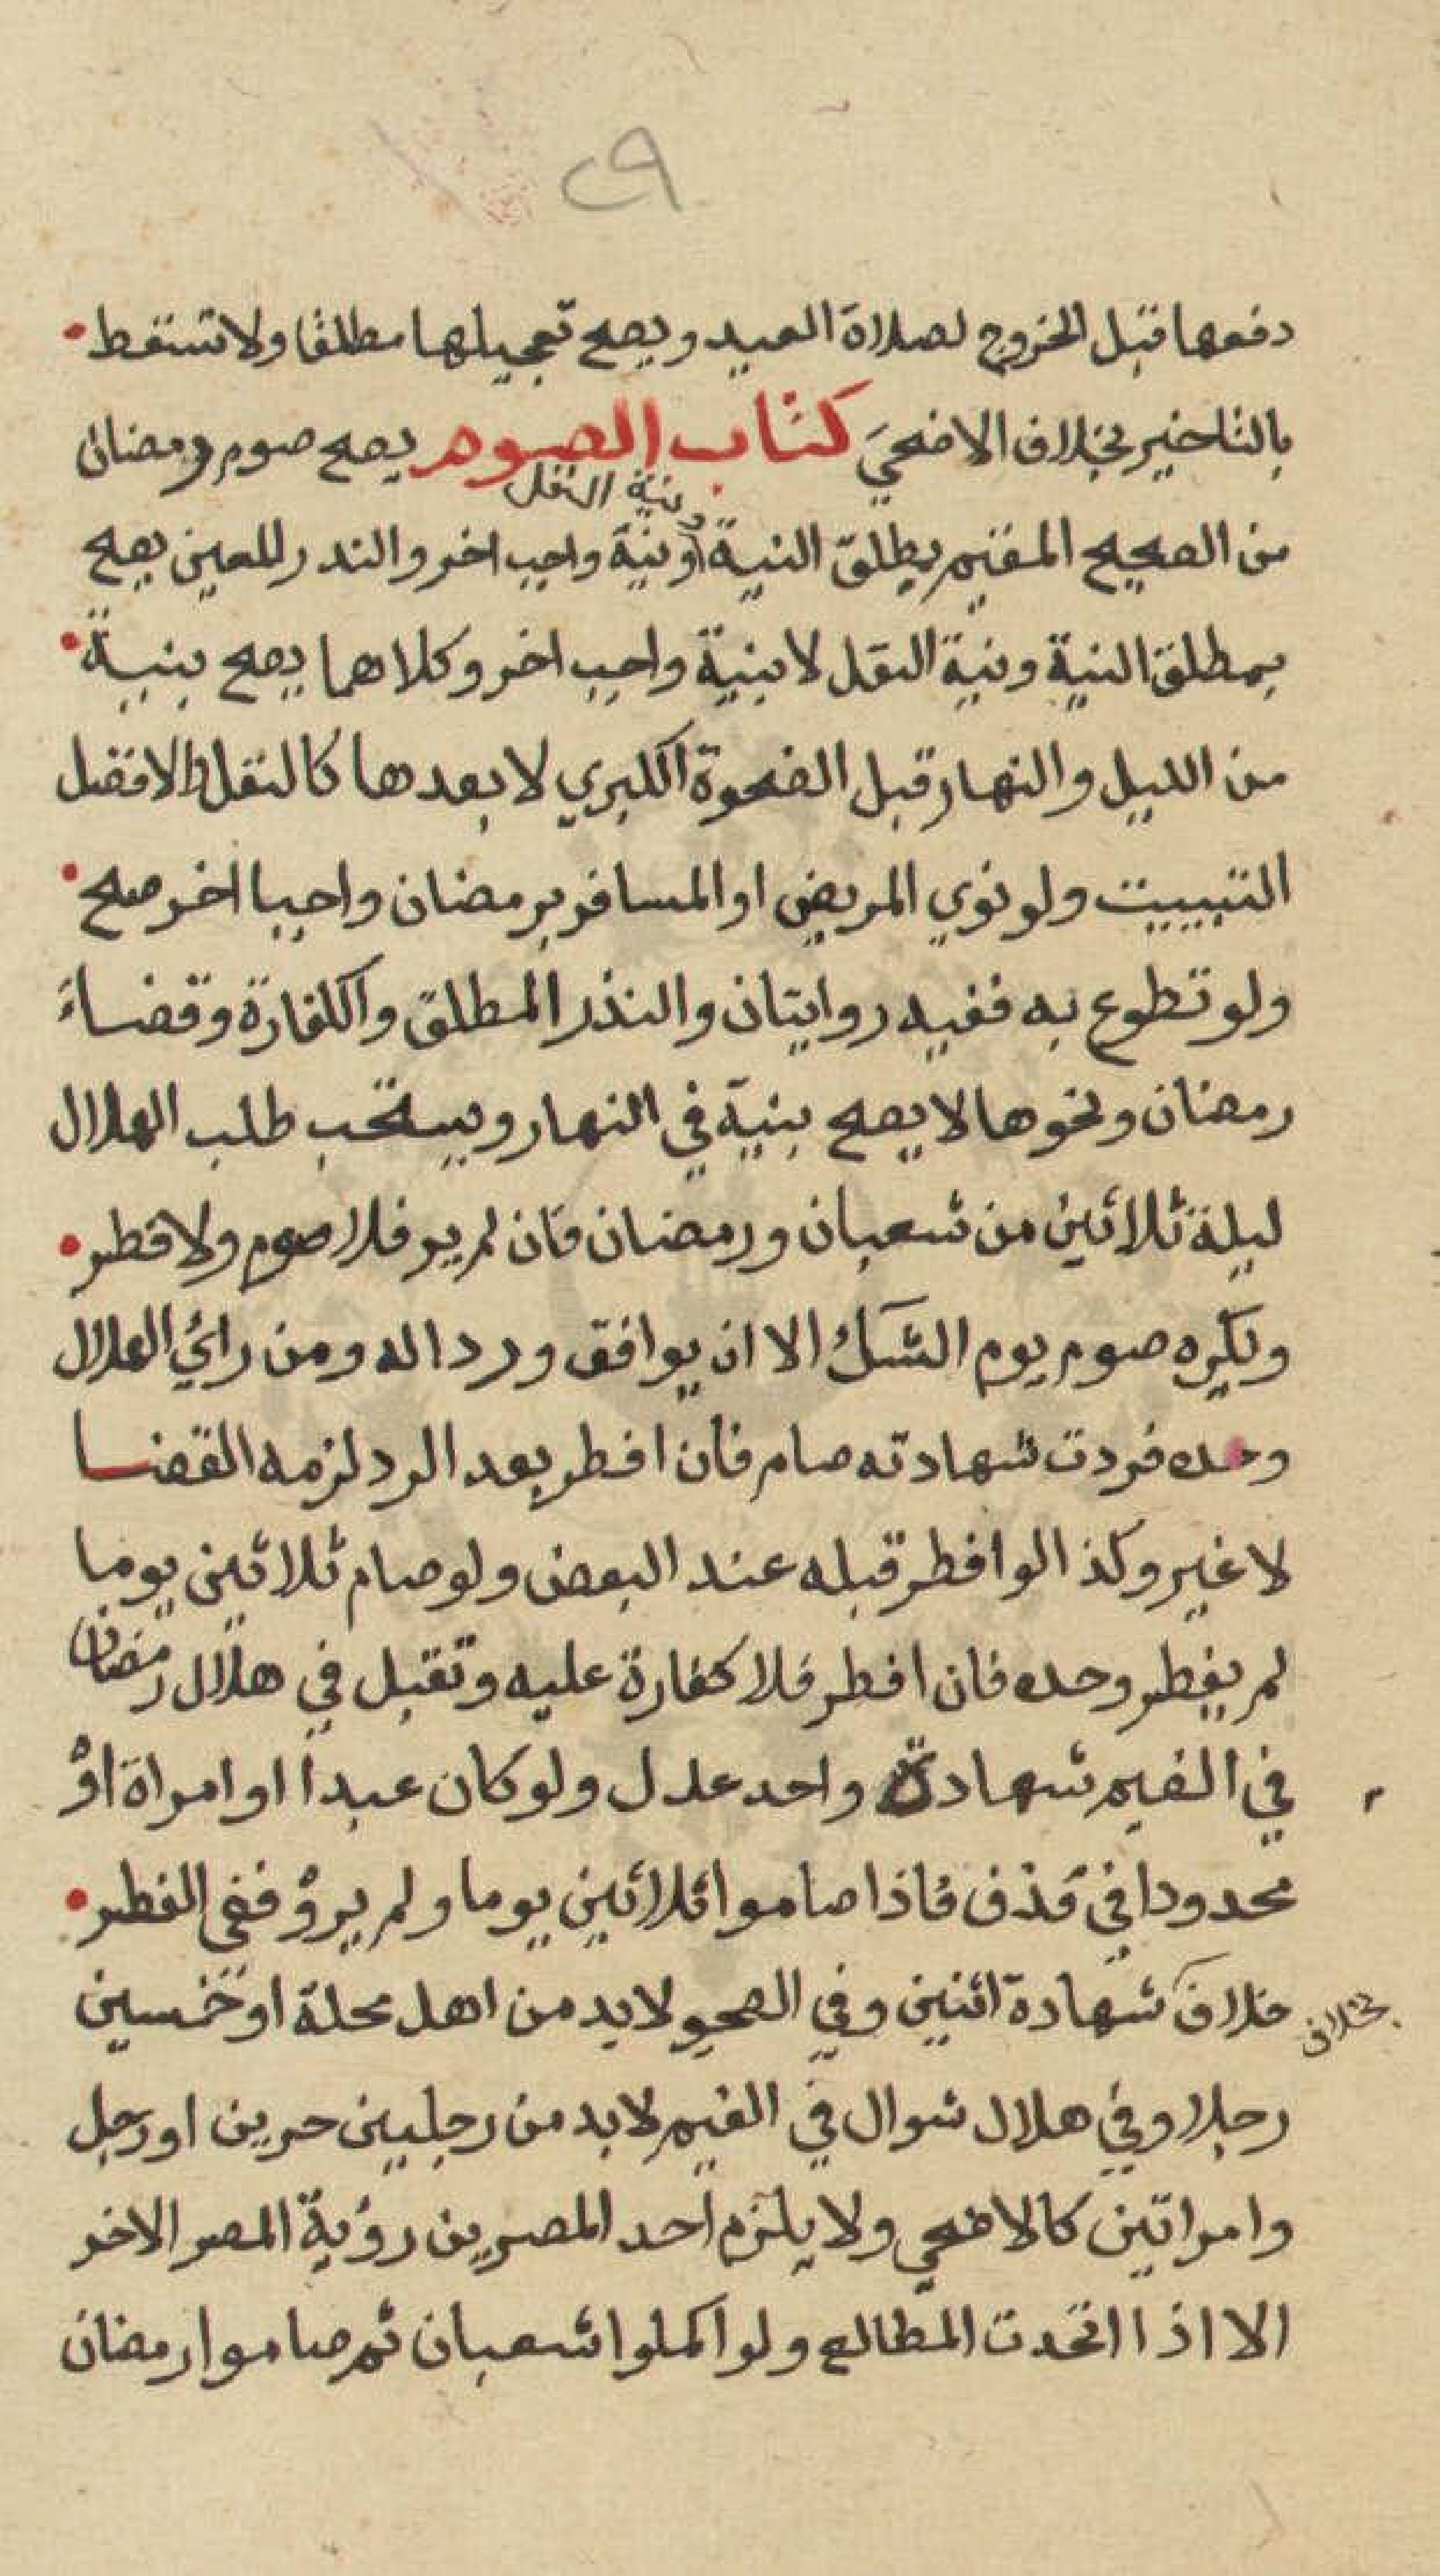 ٢٩
دفعها قبل الخروج لصلاة العيد ويصح تعجيلها مطلقا ولا تسقط
بالتاخير بخلاف الاضحي كتاب الصوم يصح صوم رمضان
ونية النفل
من الصحيح المقيم بطلق النية اونية واجب اخر والنذر المعين يصح
بمطلق النية ونية النفل لا بنية واجب اخر وكلاهما يصح بنية
من الليل والنهار قبل الضحوة الكبري لا بعدها كالنفل والافضل
التبييت ولو نوي المريض او المسافر برمضان واجبا اخر صح
ولو تطوع به ففيه روايتان والنذر المطلق والكفارة وقضاء
رمضان ونحوها لا يصح بنية في النهار ويستحب طلب الهلال
ليلة ثلاثين من شعبان ورمضان فان لم ير فلا صوم ولا فطر
ويكره صوم يوم الشك الا ان يوافق وردا له ومن رائ الهلال
وحده فردت شهادته صام فان افطر بعد الرد لزمه القضا
لا غير وكذا لو افطر قبله عند البعض ولو صام ثلاثين يوما
لم يفطر وحده فان افطر فلا كفارة عليه وتقبل في هلال رمضان
في الغيم شهادة واحد عدل ولو كان عبدا او امراة او
محدودا في قذف فاذا صاموا ثلاثين يوما ولم يرو ففي الفطر
خلاف شهادة اثنين وفي الصحو لا بد من اهل محلة او خمسين
بخلاف
رجلا وفي هلال شوال في الغيم لا بد من رجليين حرين او رجل
وامراتين كالاضحي ولا يلزم احد المصرين رؤية المصر الاخر
الا اذا اتحدت المطالع ولو اكملوا شعبان ثم صاموا رمضان